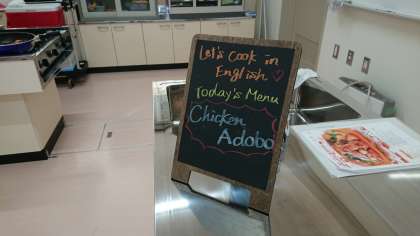 Let's Cook in
English ♡
Today's Menu
Chicken
Adobo